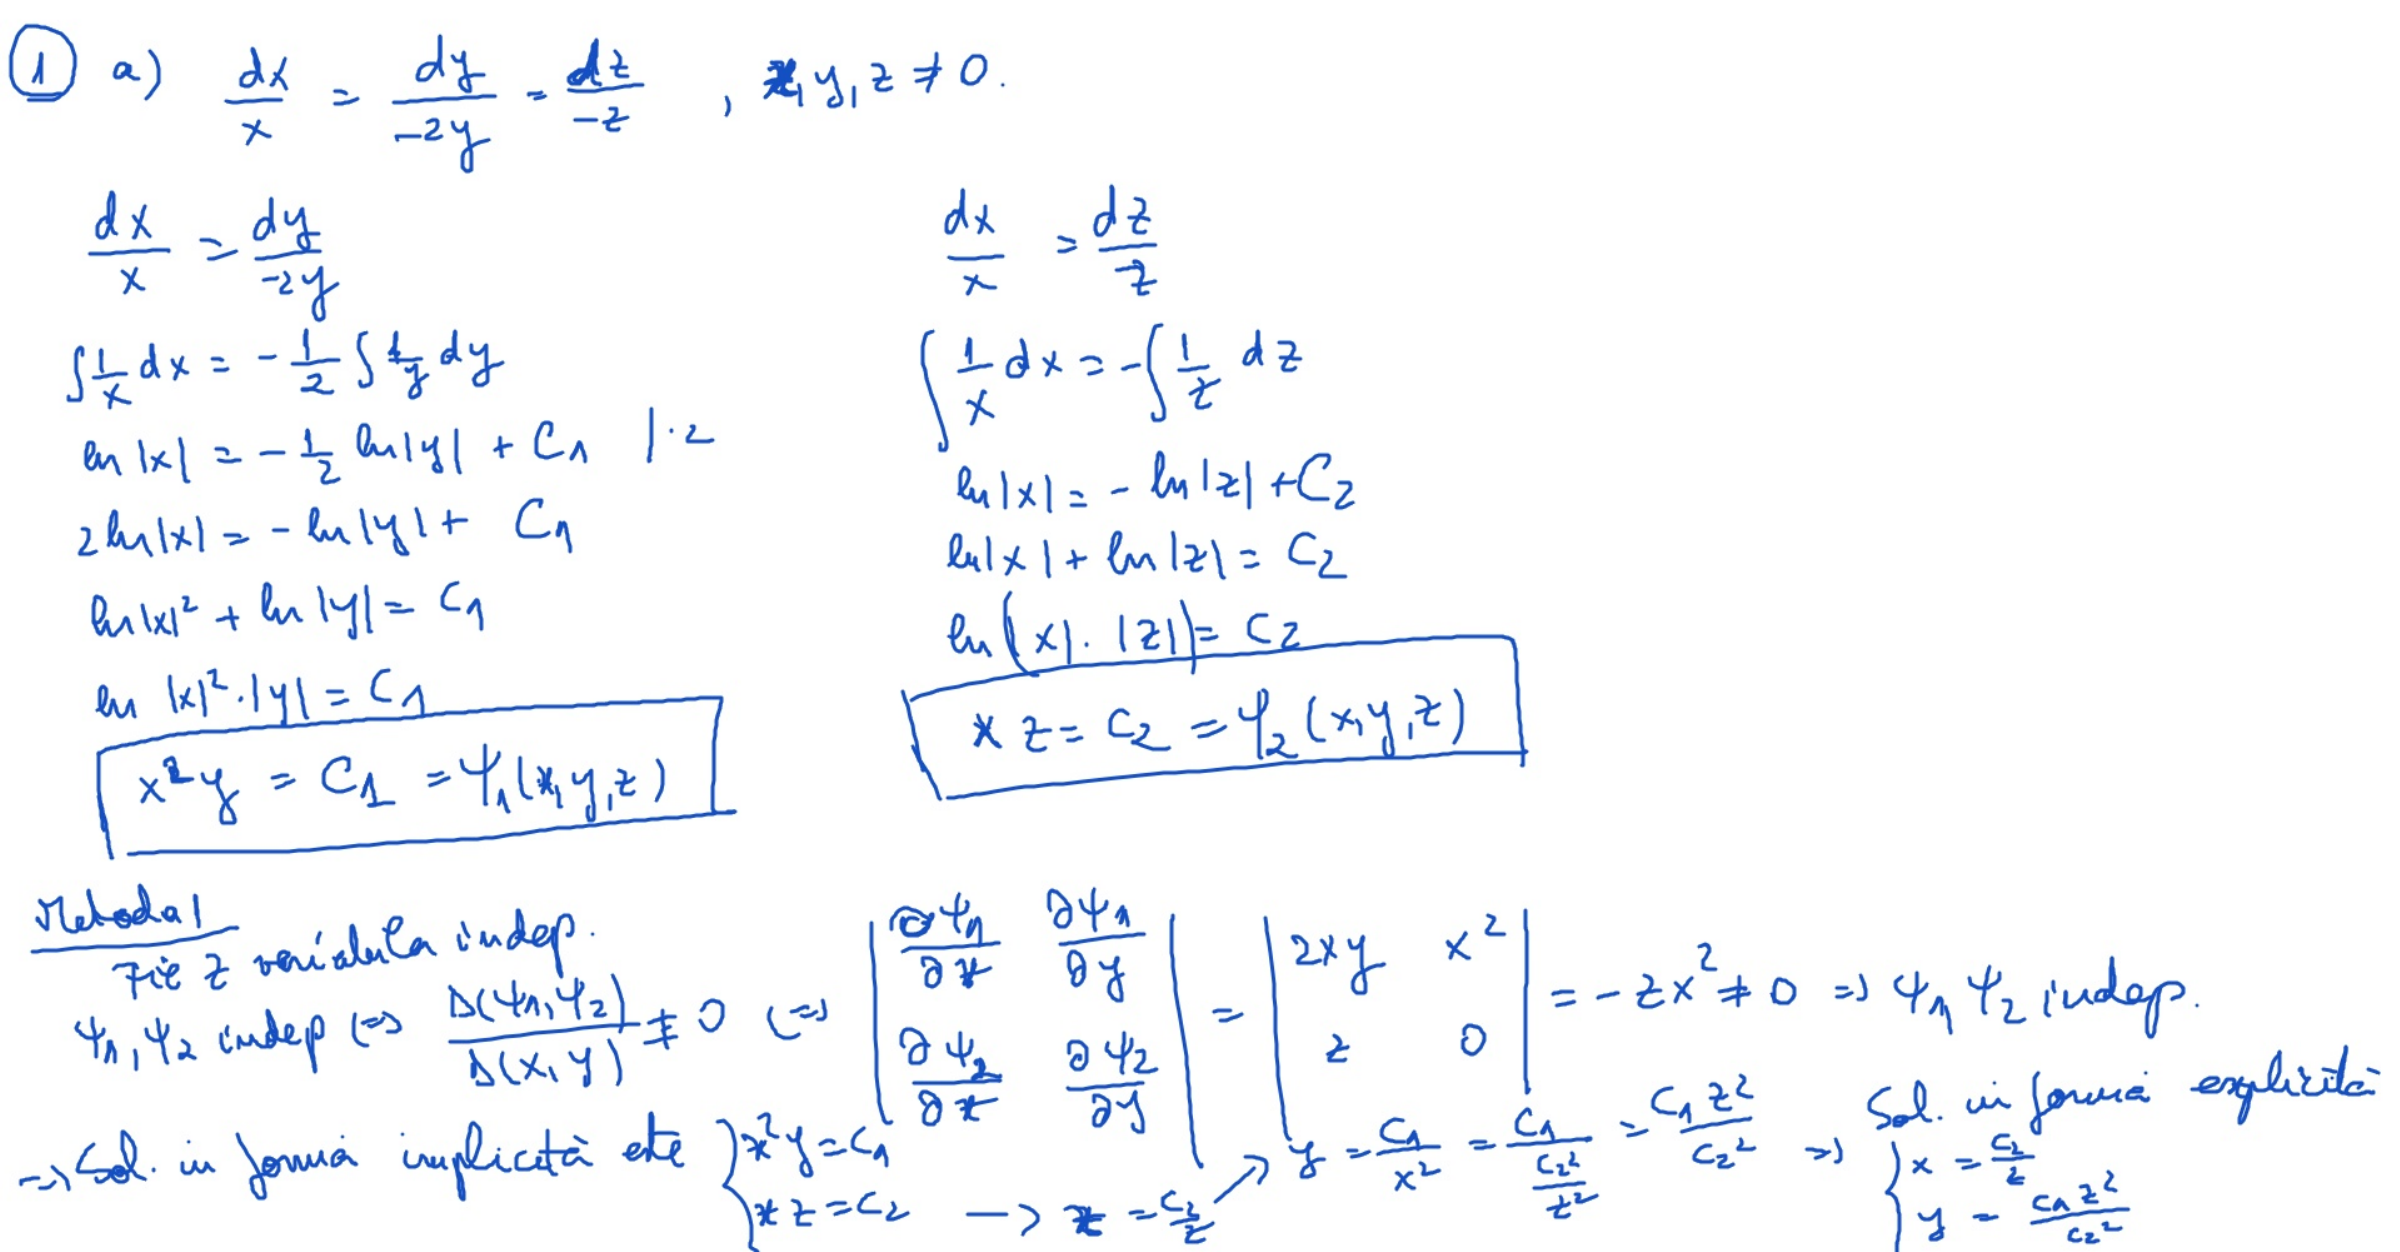 ① a) dx/x = dy/-2y = dz/-z , x, y, z ≠ 0.
dx/x = dy/-2y
∫ 1/x dx = - 1/2 ∫ 1/y dy
ln |x| = - 1/2 ln |y| + C₁ | · 2
2 ln |x| = - ln |y| + C₁
ln |x|² + ln |y| = C₁
ln |x|² · |y| = C₁
x² y = C₁ = Ψ₁ (x, y, z)
dx/x = dz/-z
∫ 1/x dx = - ∫ 1/z dz
ln |x| = - ln |z| + C₂
ln |x| + ln |z| = C₂
ln (|x| · |z|) = C₂
x z = C₂ = Ψ₂ (x, y, z)
Metoda 1
Fie z variabila indep.
Ψ₁, Ψ₂ indep (=> D(Ψ₁, Ψ₂)/D(x, y) ≠ 0 (=> | ∂Ψ₁/∂x ∂Ψ₁/∂y ; ∂Ψ₂/∂x ∂Ψ₂/∂y | = | 2xy x² ; z 0 | = - zx² ≠ 0 => Ψ₁ Ψ₂ indep.
=> Sol. in formă implicită este { x² y = C₁ ; x z = C₂ -> x = C₂/z ↗ y = C₁/x² = C₁/(C₂²/z²) = C₁ z²/C₂² => Sol. in formă explicită
{ x = C₂/z
y = C₁ z²/C₂²